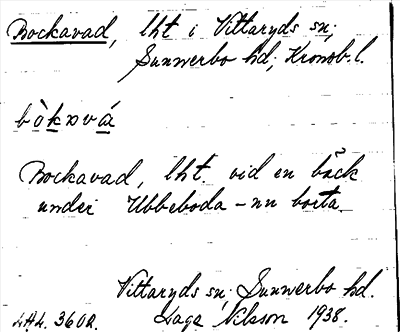 Bockavad, lht i Vittaryds sn;
Sunnerbo hd; Kronob. l.
bòkavá
Bockavad, lht. vid en bäck
under Ubbeboda – nu borta.
Vittaryds sn; Sunnerbo hd.
LAL. 3600. Saga Nilsson 1938.